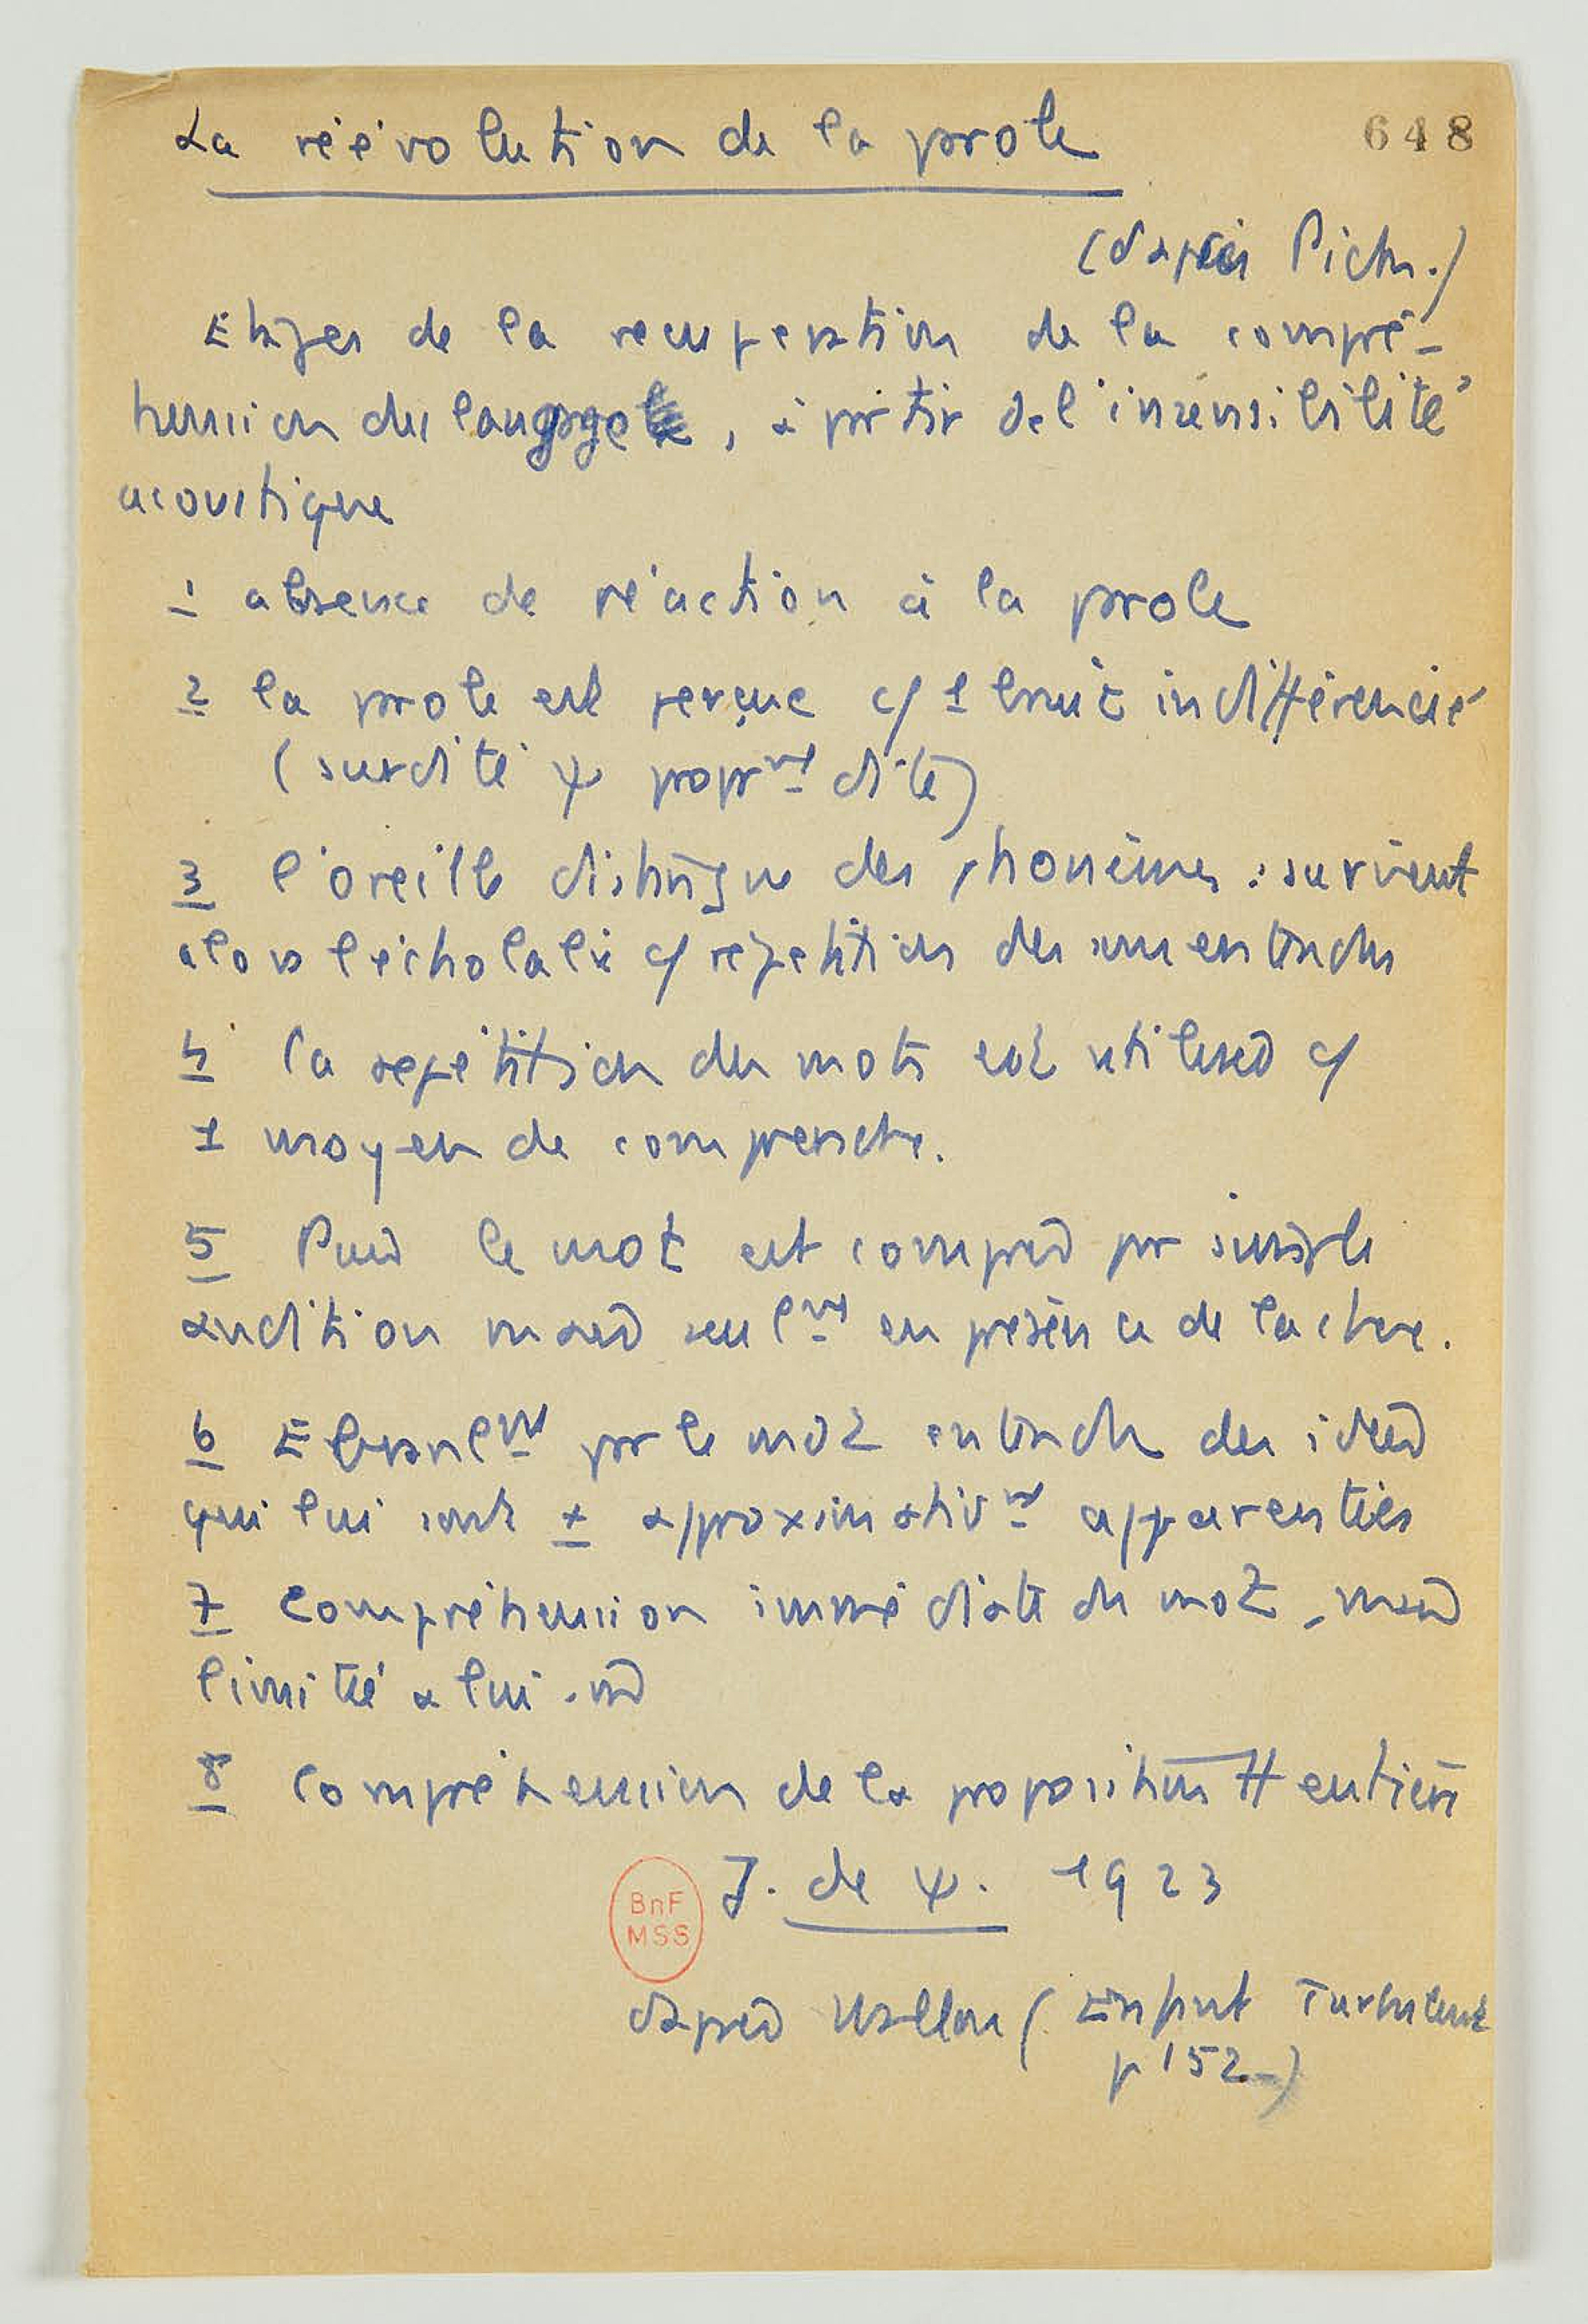 La réévolution de la parole
648
(d'après Pick.)
Etapes de la recuperation de la compré-
hension du langage, à partir de l'insensibilité
acoustique
1 absence de réaction à la parole
2 la parole est perçue c/ 1 bruit indifférencié
(surdité ψ propr^mt dite)
3 l'oreille distingue des phonèmes : survient
alors l'écholalie c/ répétition des sons entendus
4 la répétition du mot est utilisée c/
1 moyen de comprendre.
5 Puis le mot est compris par simple
audition mais seul^mt en présence de la chose.
6 Ebranl^mt par le mot entendu des idées
qui lui sont ± approximativ^mt apparentées
7 Compréhension immédiate du mot, mais
limité à lui-m̂
8 Compréhension de la proposition tt entière
J. de ψ. 1923
BnF
MSS
d'après Wallon (Enfant Turbulent
p 152-)